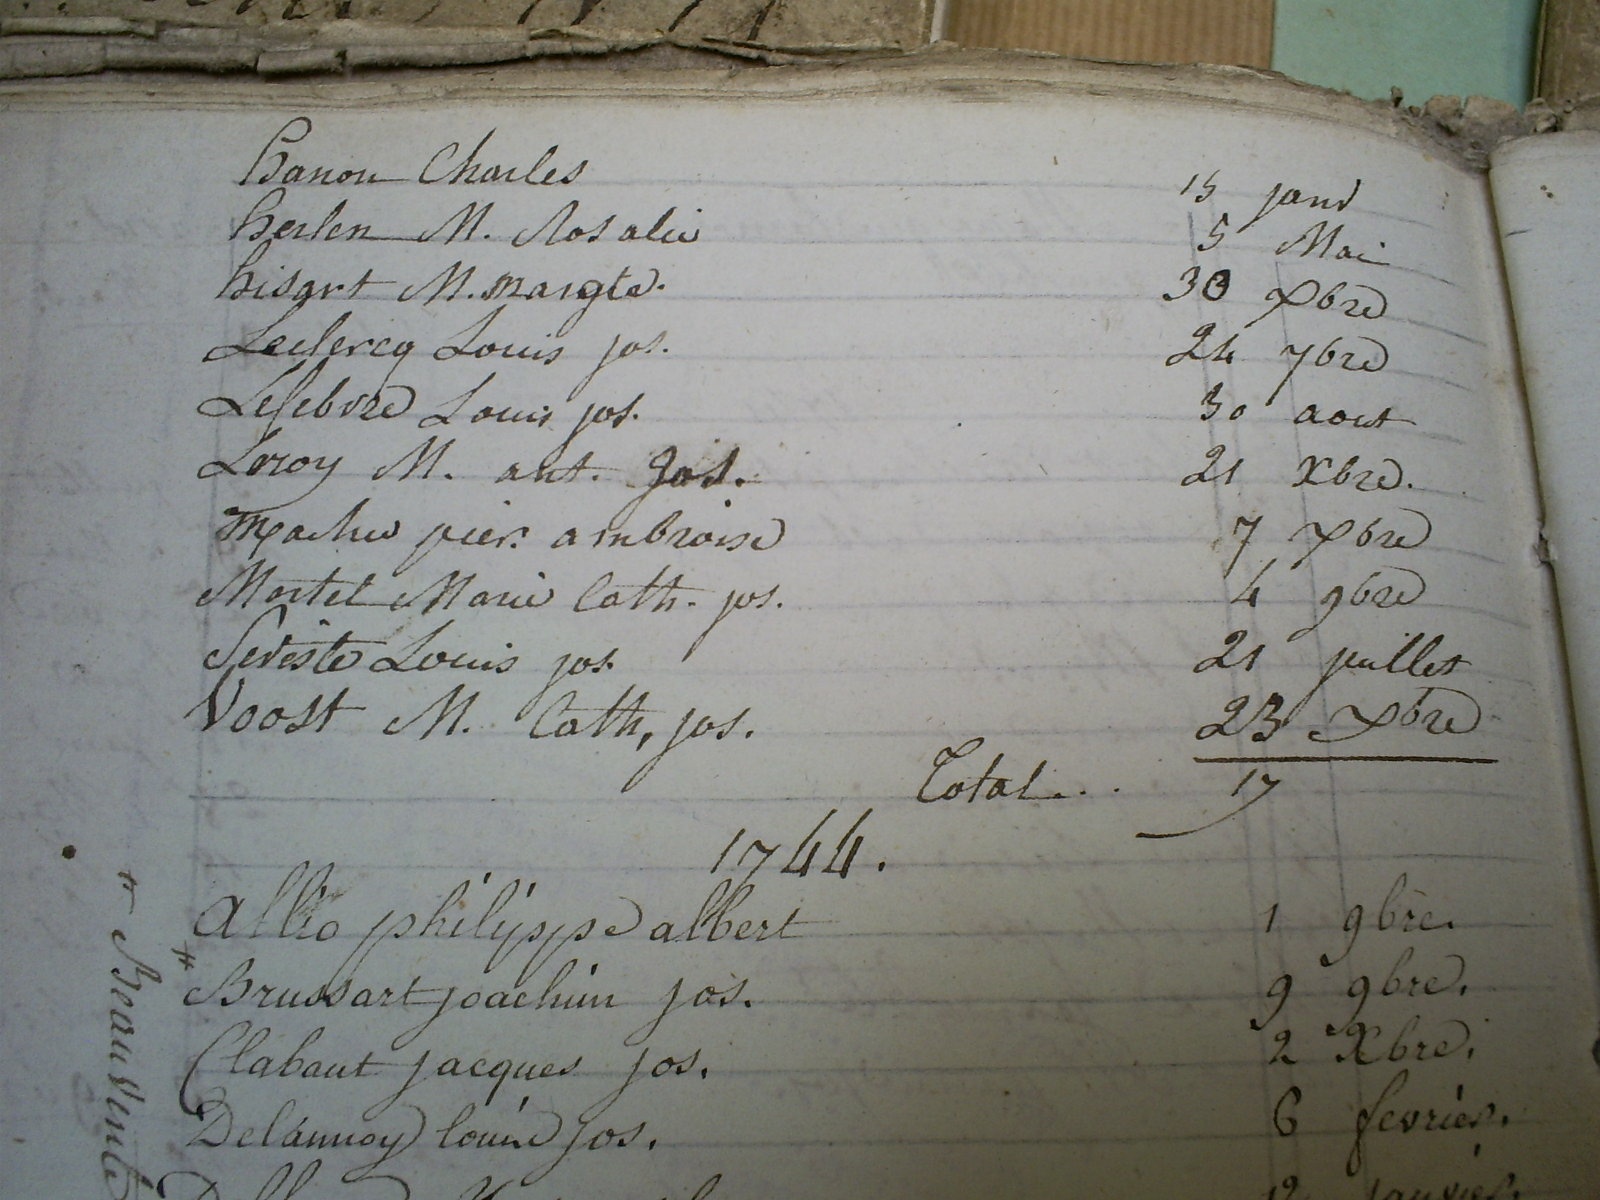 hanon Charles 15 janv
herlen M. Rosalie 5 Mai
hisart M. margte. 30 Xbre
Leclercq Louis jos. 24 7bre
Lefebvre Louis jos. 30 aout
Leroy M. ant. Jos. 21 Xbre.
Machu pier. ambroise 7 Xbre
Martel Marie Cath. jos. 4 9bre
Seviste Louis jos. 21 juillet
Voost M. Cath, jos. 23 Xbre
Total... 17
1744.
allio philippe albert 1 9bre.
# Brussart joachim jos. 9 9bre.
Clabaut jacques jos. 2 Xbre.
Delannoy louise jos. 6 fevrier.
12 janvier
# Beauvente